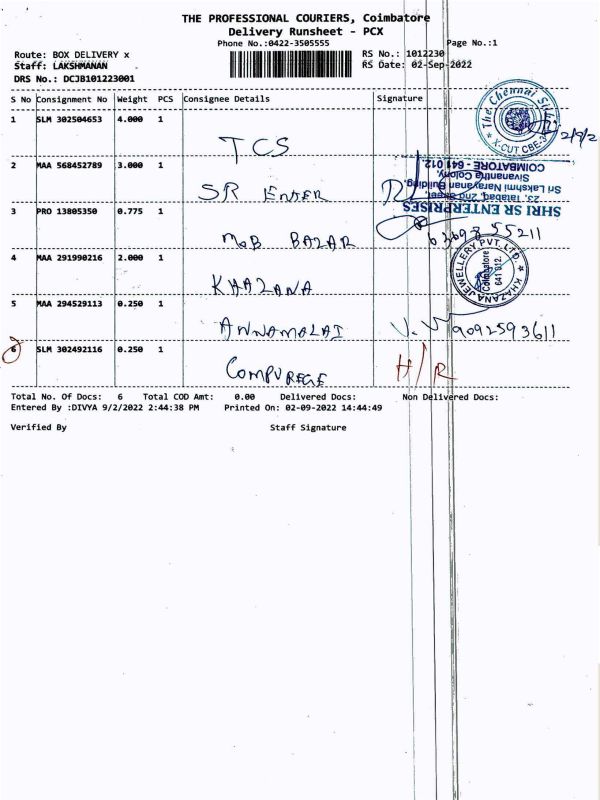 THE PROFESSIONAL COURIERS, Coimbatore
Delivery Runsheet - PCX
Phone No.:0422-3505555
Page No.:1
Route: BOX DELIVERY x
RS No.: 1012230
Staff: LAKSHMANAN
RS Date: 02-Sep-2022
DRS No.: DCJB101223001
S No Consignment No Weight PCS Consignee Details Signature
1 SLM 302504653 4.000 1
TCS
The Chennai Silks
X-CUT CBE-
2/9/2
2 MAA 568452789 3.000 1
SR ENTER
SHRI SR ENTERPRISES
23, Tatabad, 2nd Street,
Sri Lakshmi Narayanan Building,
Sivanantha Colony,
COIMBATORE - 641 012.
3 PRO 13805350 0.775 1
MOB BAZAR
63698 55211
4 MAA 291990216 2.000 1
KHAZANA
KHAZANA JEWELLERY PVT. LTD.
Coimbatore
641 012.
5 MAA 294529113 0.250 1
ANNAMALAI
9092593611
6 SLM 302492116 0.250 1
H/R
Total No. Of Docs: 6 Total COD Amt: 0.00 Delivered Docs: Non Delivered Docs:
Entered By :DIVYA 9/2/2022 2:44:38 PM Printed On: 02-09-2022 14:44:49
Verified By Staff Signature